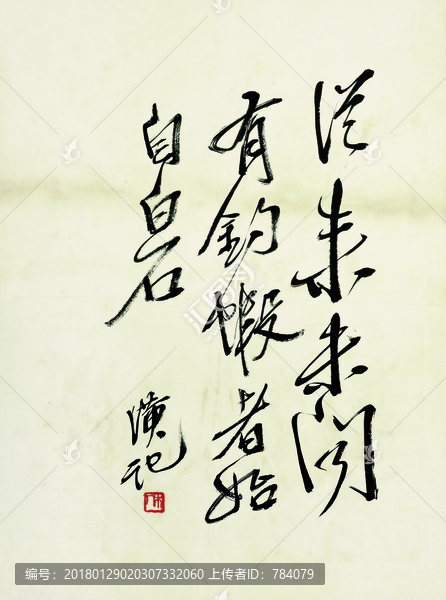 從来未聞
有釣蝦者始
自白石
璜記
编号：20180129020307332060 上传者ID：784079